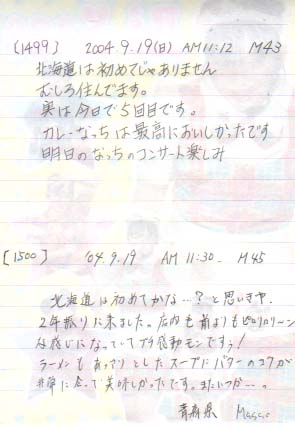 [1499] 2004.9.19(日) AM11:12 M43
北海道は初めてじゃありません
むしろ住んでます。
実は今日で5回目です。
カレーなっちは最高においしかったです
明日のなっちのコンサート楽しみ
[1500] '04.9.19 AM 11:30. M45
北海道は初めてかな…?と思いきや、
2年振りに来ました。店内も前よりも
な感じになっていてプチ感動モンですぅ!
ラーメンもあっさりとしたスープにバターのコクが
非常に合って美味しかったです。またいつか…。
青森県 Masao